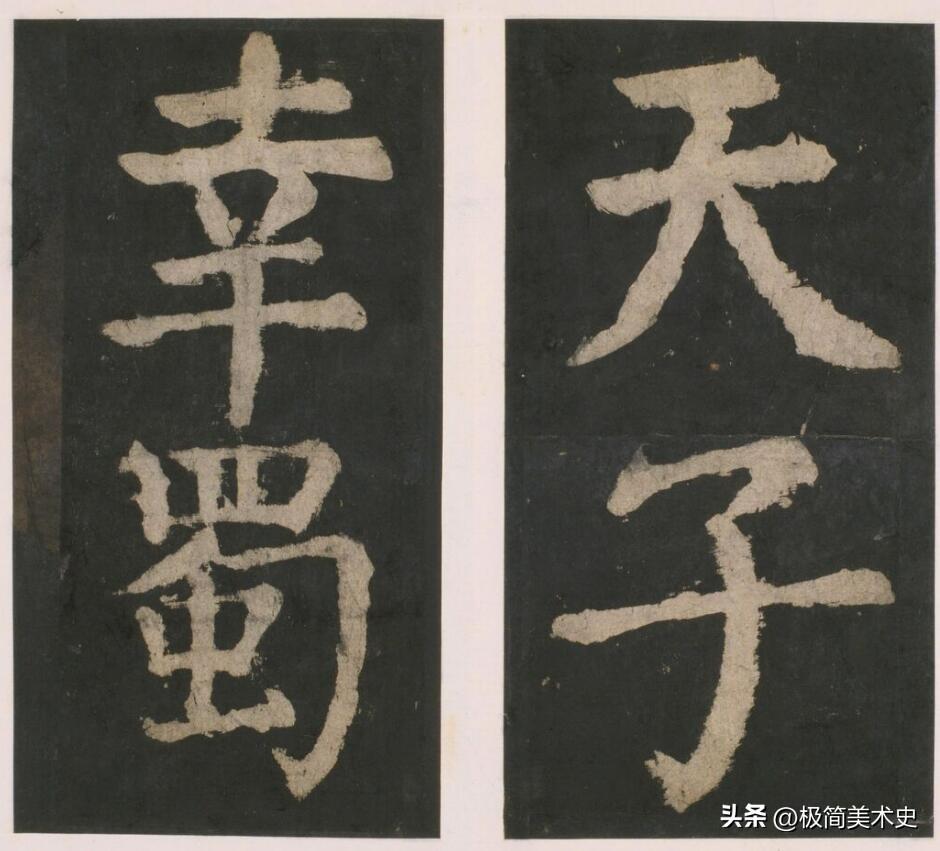 天子
幸蜀
头条 @极简美术史